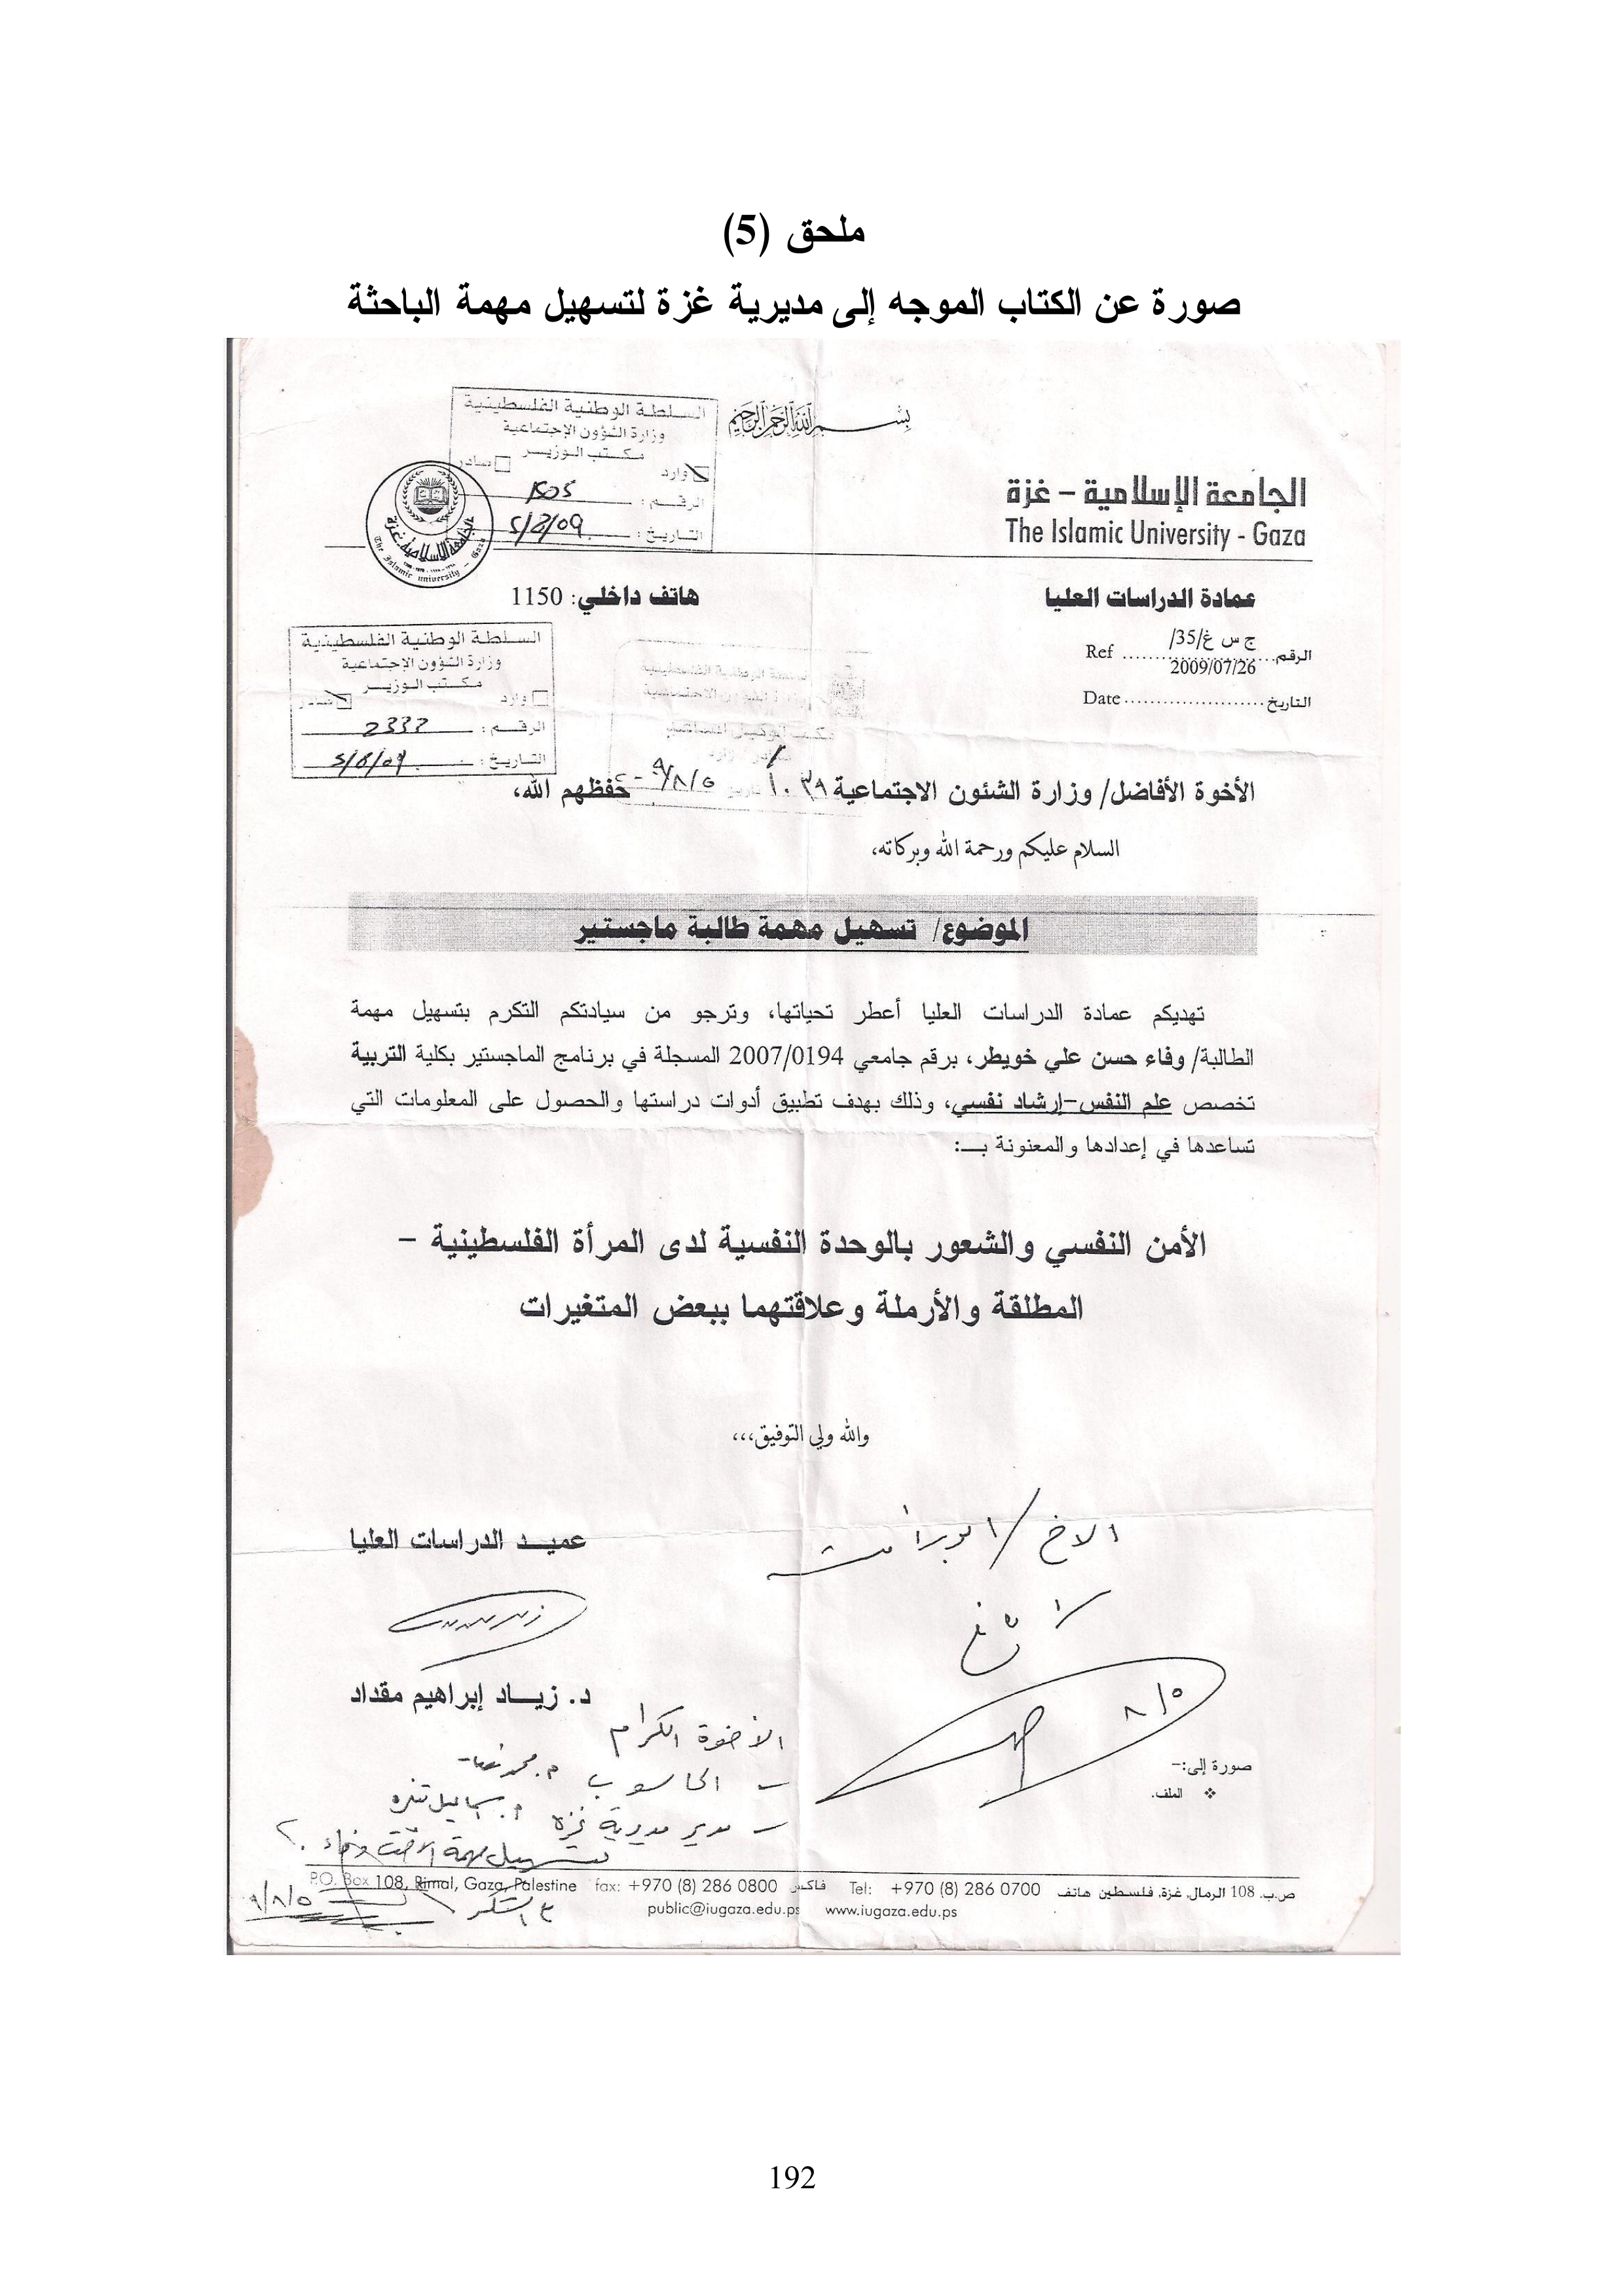 ملحق (5)
صورة عن الكتاب الموجه إلى مديرية غزة لتسهيل مهمة الباحثة
بسم الله الرحمن الرحيم
السلطة الوطنية الفلسطينية
وزارة الشؤون الإجتماعية
مكتب الوزير
وارد صادر
الرقم:
التاريخ:
الجامعة الإسلامية – غزة
The Islamic University - Gaza
الجامعة الإسلامية غزة
The Islamic University - Gaza
عمادة الدراسات العليا
هاتف داخلي: 1150
الرقم ج س غ/35/ Ref
2009/07/26
التاريخ Date
السلطة الوطنية الفلسطينية
وزارة الشؤون الإجتماعية
مكتب الوزير
وارد صادر
الرقم: 2332
التاريخ:
الأخوة الأفاضل/ وزارة الشئون الاجتماعية حفظهم الله،
السلام عليكم ورحمة الله وبركاته،
الموضوع/ تسهيل مهمة طالبة ماجستير
تهديكم عمادة الدراسات العليا أعطر تحياتها، وترجو من سيادتكم التكرم بتسهيل مهمة
الطالبة/ وفاء حسن علي خويطر، برقم جامعي 2007/0194 المسجلة في برنامج الماجستير بكلية التربية
تخصص علم النفس-إرشاد نفسي، وذلك بهدف تطبيق أدوات دراستها والحصول على المعلومات التي
تساعدها في إعدادها والمعنونة بـ:
الأمن النفسي والشعور بالوحدة النفسية لدى المرأة الفلسطينية –
المطلقة والأرملة وعلاقتهما ببعض المتغيرات
والله ولي التوفيق،،،
عميد الدراسات العليا
د. زياد إبراهيم مقداد
الأخوة الكرام
- الحاسوب
- مدير مديرية غزة
تسهيل مهمة الأخت وفاء
صورة إلى:-
❖ الملف.
ص.ب. 108 الرمال، غزة، فلسطين هاتف Tel: +970 (8) 286 0700 فاكس fax: +970 (8) 286 0800 P.O. Box 108, Rimal, Gaza, Palestine
public@iugaza.edu.ps www.iugaza.edu.ps
192